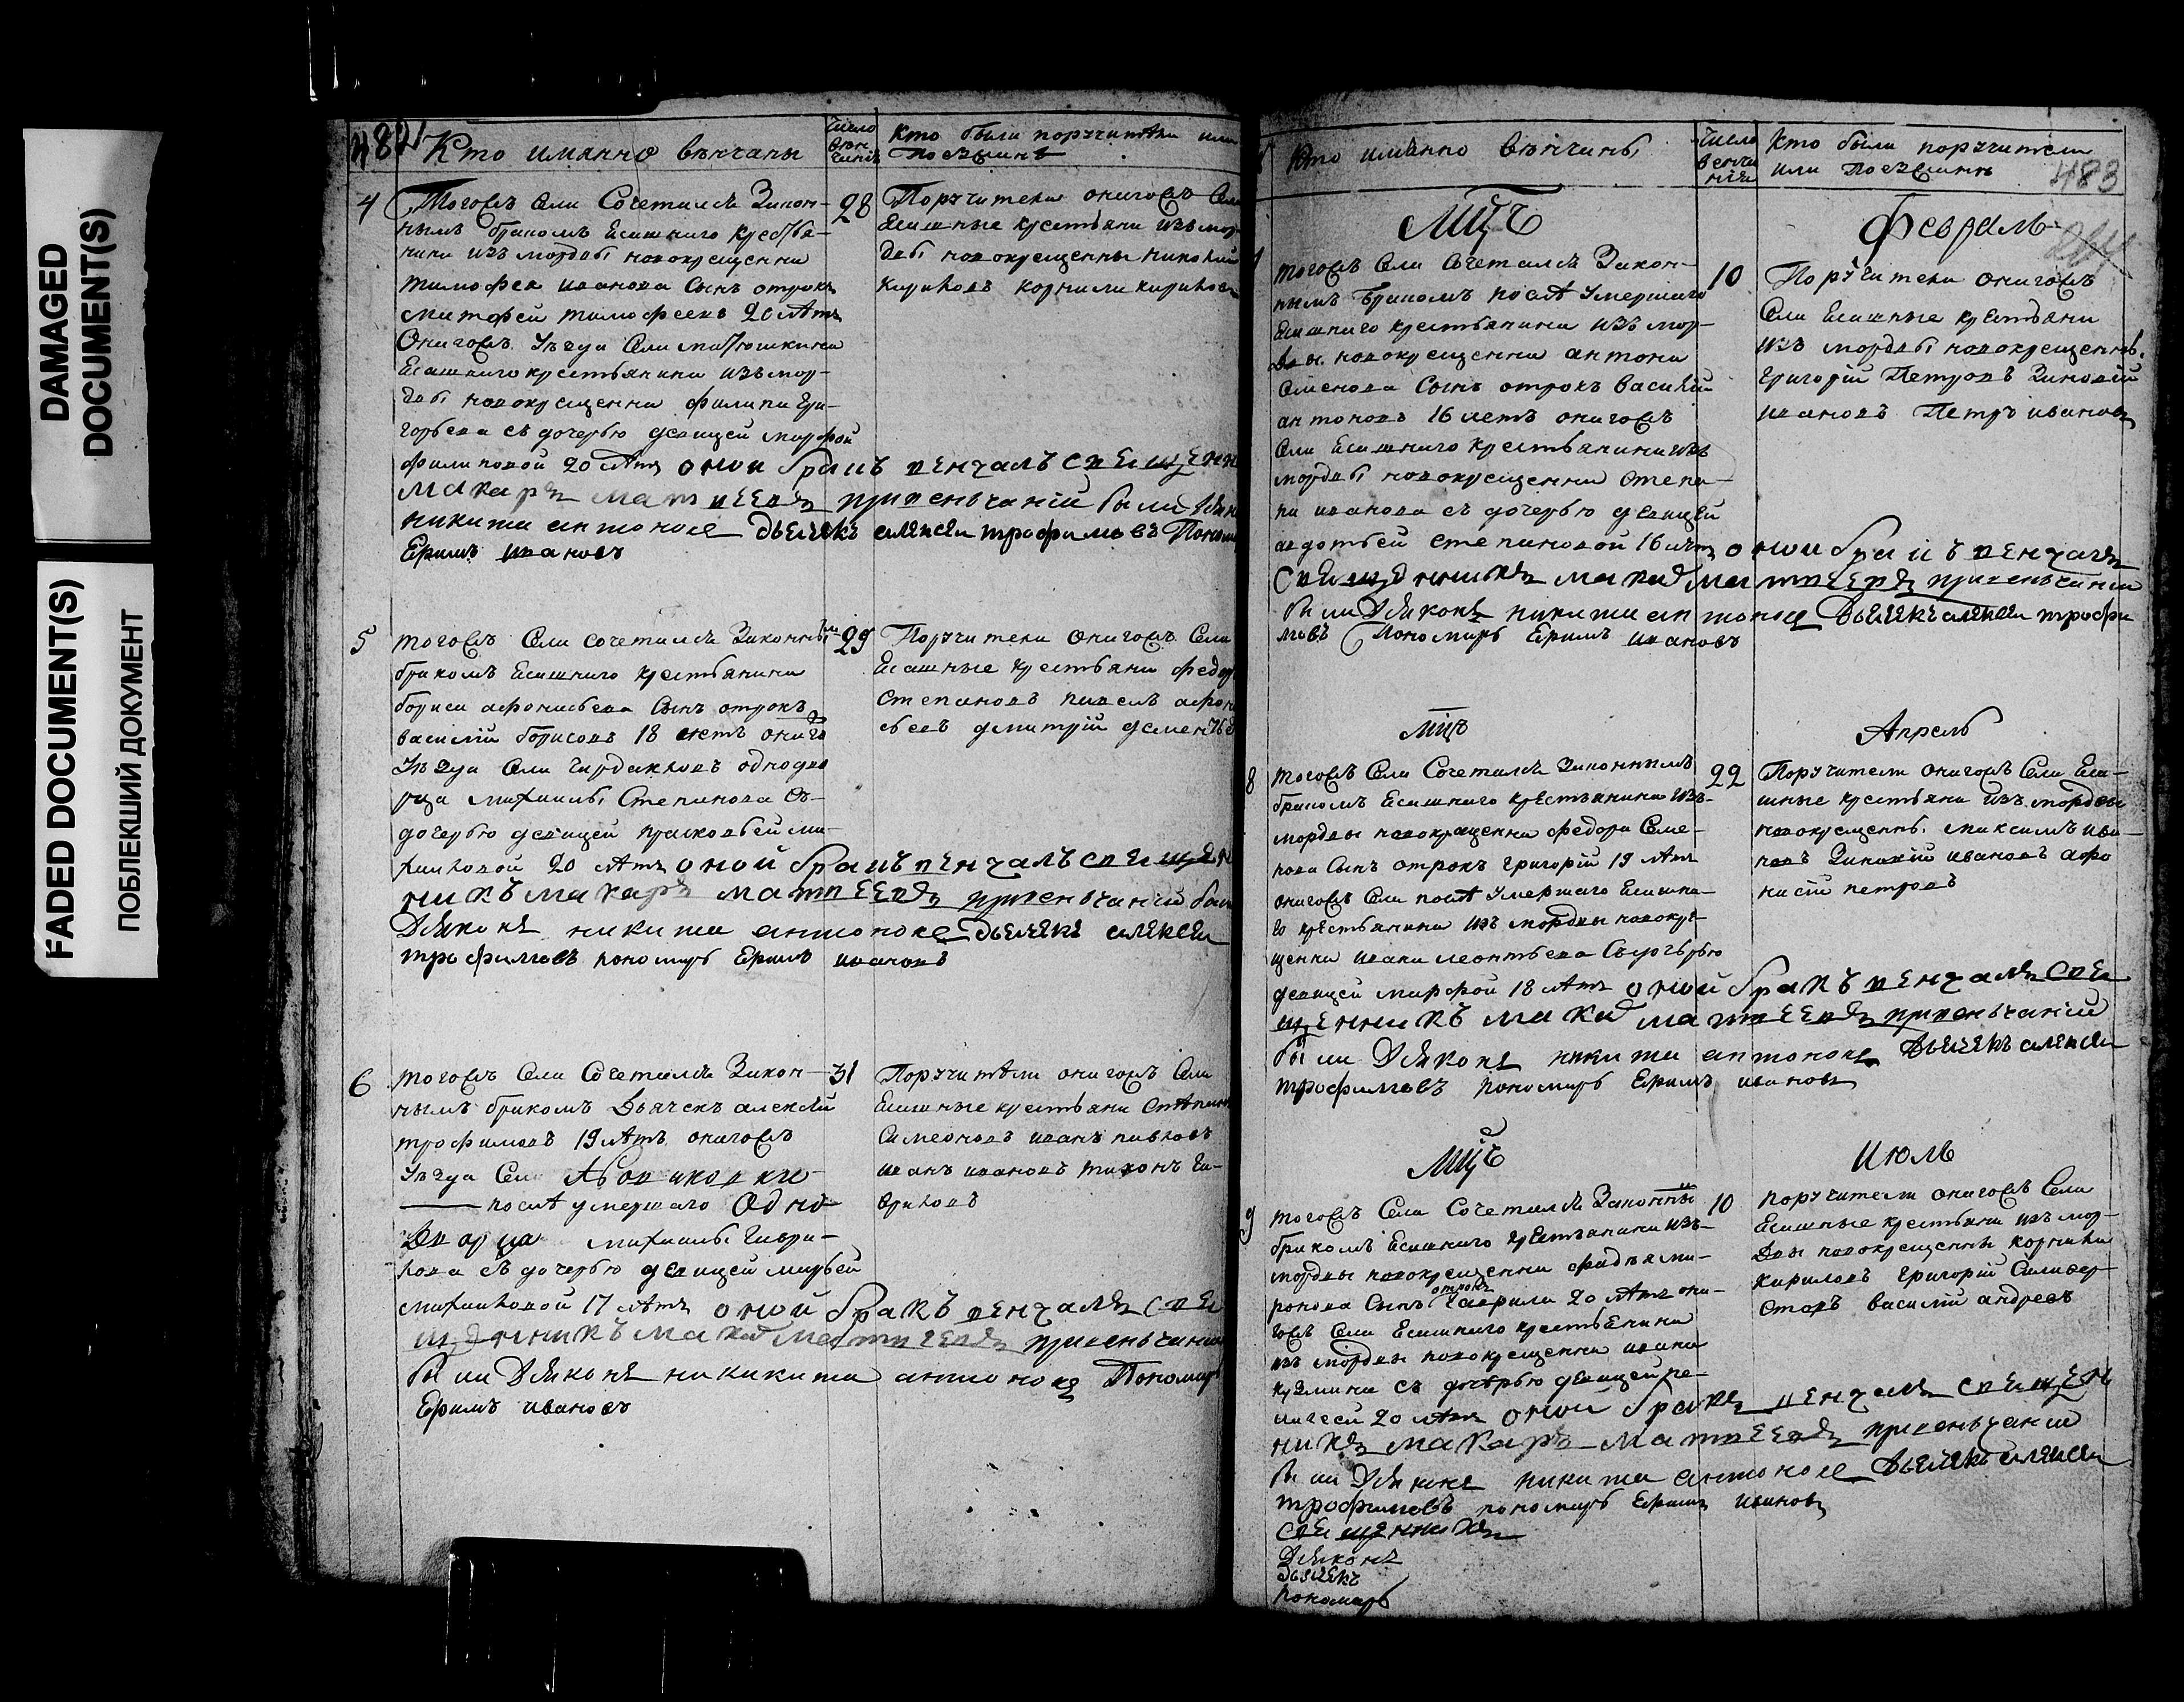 DAMAGED
DOCUMENT(S)
FADED DOCUMENT(S)
ПОБЛЕКШИЙ ДОКУМЕНТ
482
Кто имянно венчаны
Число
вен
чанія
Кто были поручители или
поезжане
4
Тогожъ Села Сочетался Закон-
нымъ бракомъ Ясашнаго крестья-
нина изъ мордвы новокрещенна
тимофея иванова Сынъ отрокъ
матфей тимофеевъ 20 летъ
Оногожъ Уезда Села матюшкина
Ясашнаго крестьянина изъ мор-
двы новокрещенна филипа Гри-
горьева съ дочерью девицей марфой
филиповой 20 летъ оной бракъ венчалъ священн
макаръ матвеевъ привенчаніи были дьякон
никита антоновъ дьячекъ алексей трофимовъ Поном
Ефимъ ивановъ
28
Поручители оногожъ Села
Ясашные крестьяни изъ мор-
двы новокрещенны николай
кириловъ корнила кирилов
5
тогожъ Села сочетался Законны
бракомъ Ясашнаго крестьянина
бориса афонасьева Сынъ отрокъ
василій борисовъ 18 летъ оного
Уезда Села чардакловъ однодво
рца михаилы Степанова съ
дочерью девицей прасковьей ми-
хаиловой 20 летъ оной бракъ венчалъ священ
никъ макаръ матвеевъ привенчаніи были
дьяконъ никита антоновъ дьячекъ алексей
трофимовъ пономарь Ефимъ ивановъ
29
Поручители оногожъ Села
Ясашные крестьяни федор
степановъ павелъ афона
сьевъ дмитрій дементьев
6
тогожъ Села Сочетался Закон-
нымъ бракомъ дьячекъ алексей
трофимовъ 19 летъ оногожъ
Уезда Села
после умершаго Одно
дворца михаилы гаври-
лова съ дочерью девицей марьей
михаиловой 17 летъ оной бракъ венчалъ свя
щенникъ макаръ матвеевъ привенчаніи
были дьяконъ никикита антоновъ Пономарь
Ефимъ ивановъ
31
Поручители оногожъ Села
Ясашные крестьяни степанъ
Симеоновъ иванъ павловъ
иванъ ивановъ тихонъ га-
вриловъ
Кто имянно венчаны
Число
венча
нія
Кто были поручители
или поезжанъ
483
Мцъ
Февраль
тогожъ Села Сочетался Закон-
нымъ бракомъ после Умершаго
Ясашнаго крестьянина изъ мор-
двы новокрещенна антона
Семенова Сынъ отрокъ василій
антоновъ 16 летъ оногожъ
Села Ясашнаго крестьянина изъ
мордвы новокрещенна степа-
на иванова съ дочерью девицей
авдотьей степановой 16 летъ оной бракъ венчалъ
священникъ макар матвеевъ привенчаніи
были дьяконъ никита антоновъ дьячекъ алексей трофи
мовъ Пономарь Ефимъ ивановъ
10
Поручители оногожъ
Села Ясашные крестьяни
изъ мордвы новокрещенны
григорій Петровъ Зиновій
ивановъ Петръ иванов
Мцъ
Апрель
8
тогожъ Села Сочетался Законнымъ
бракомъ Ясашнаго крестьянина изъ
мордвы новокрещенна федора Семе-
нова Сынъ отрокъ григорій 19 летъ
оногожъ Села после Умершаго Ясашна-
го крестьянина изъ мордвы новокре-
щенна ивана леонтьева Съ дочерью
девицей марфой 18 летъ оной бракъ венчалъ свя
щенникъ макар матвеевъ привенчаніи
были дьяконъ никита антоновъ дьячекъ алексей
трофимовъ пономарь Ефимъ ивановъ
22
Поручители оногожъ Села Яса-
шные крестьяни изъ мордвы
новокрещенны максимъ ива-
новъ Зиновій ивановъ афо
насій петровъ
Мцъ
Июль
9
тогожъ Села Сочетался Законны
бракомъ Ясашнаго крестьянина изъ
мордвы новокрещенна фадея ми-
ронова Сынъ отрокъ гаврила 20 летъ оно-
гожъ Села Ясашнаго крестьянина
изъ мордвы новокрещенна ивана
кузмина съ дочерью девицей пе-
лагеей 20 летъ оной бракъ венчалъ священ
никъ макаръ матвеевъ привенчаніи
были дьяконъ никита антоновъ дьячекъ алексей
трофимовъ пономарь Ефимъ ивановъ
священникъ
дьяконъ
дьячекъ
пономарь
10
поручители оногожъ Села
Ясашные крестьяни изъ мор-
двы новокрещенны корнила
кириловъ григорій Селивер-
стовъ василій андреевъ